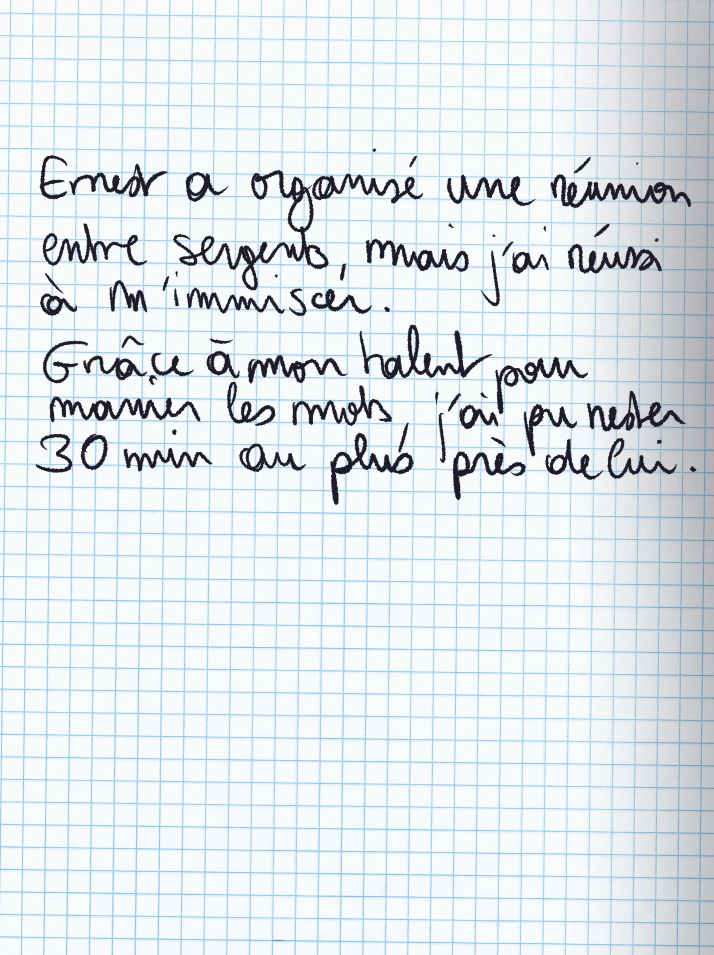 Ernest a organisé une réunion
entre sergents, mais j'ai réussi
à m'immiscer.
Grâce à mon talent pour
manier les mots, j'ai pu rester
30 min au plus près de lui.